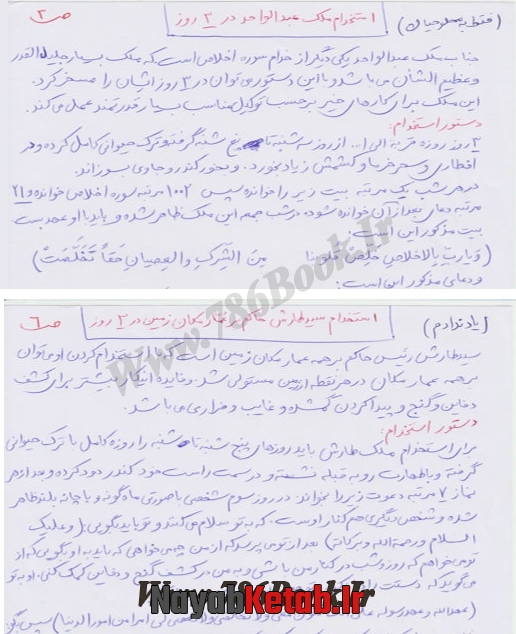 (فقط به عملو حیان) استخدام ملک عبدالواحد در ۳ روز ص۲
جناب ملک عبدالواحد یکی دیگر از خدام سوره اخلاص است که ملک بسیار جلیل القدر
و عظیم الشأن می باشد و با این دستور می توان در ۳ روز ایشان را مسخر کرد.
این ملک برای کارهای خیر بر حسب توکیل مناسب بسیار قدرتمند عمل می کند.
دستور استخدام:
۳ روز روزه قربه الی ا... از روز سه شنبه تا پنج شنبه گرفته و ترک حیوانی کامل کرده و در
افطاری و سحر خرما و کشمش زیاد بخورد. و بخور کندر و جاوی بسوزاند.
در هر شب یک مرتبه بیت زیر را خوانده سپس ۱۰۰۲ مرتبه سوره اخلاص خوانده و ۲۱
مرتبه دعای بعد از آن خوانده شود. در شب جمعه این ملک ظاهر شده و باید با او عهد بست
بیت مذکور این است:
(وَ یا رَبِّ بِالاخلاصِ خَلِّص قُلوبَنا مِنَ الشِّرکِ وَ العِصیانِ حَقّاً تَخَلَّصَتْ)
و دعای مذکور این است:
Www.786Book.Ir
(یاد ندادم) استخدام سید طارش حاکم بر عمار مکان زمین در ۳ روز ص۶
سید طارش رئیس حاکم بر همه عمار مکان زمین است که با استخدام کردن او می توان
بر همه عمار مکان در هر نقطه از زمین مستولی شد. و فایده اینکار بیشتر برای کشف
دفاین و گنج و پیدا کردن گمشده و غایب و فراری می باشد.
دستور استخدام:
برای استخدام ملک طارش باید روزهای پنج شنبه تا شنبه را روزه کامل با ترک حیوانی
گرفته و با طهارت رو به قبله نشسته و در سمت راست خود کندر دود کرده و بعد از هر
نماز ۷ مرتبه دعوت زیر را بخواند. در روز سوم شخصی با صورتی ماه گونه و با چانه بلند ظاهر
شده و شخص دیگری هم کنار اوست. که به تو سلام می کنند و تو باید بگویی: (و علیک
السلام و رحمة الله و برکاته) بعد از تو می پرسد که از من چه می خواهی که باید به او بگویی که از
تو می خواهم که روز و شب در کنار من باشی و به من در کشف گنج و دفاین کمک کنی. او به تو
می گوید که دستت را
Www.786Book.Ir
NayabKetab.Ir